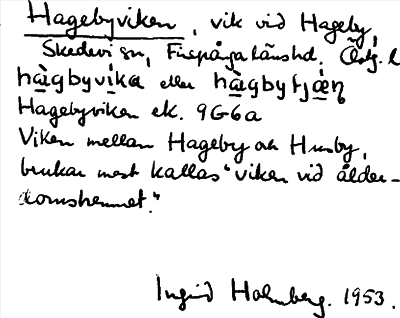 Hagebyviken, vik vid Hageby,
Skedevi sn, Finspånga länshd. Östg. l
hàgbyvika eller hàgbyfjǽn
Hagebyviken ek. 9G6a
Viken mellan Hageby och Husby,
brukar mest kallas "viken vid ålder-
domshemmet."
Ingrid Holmberg. 1953.